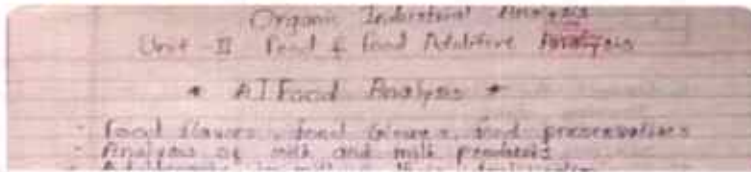 Organic Industrial Analysis
Unit II Food & food Additive Analysis
* A] Food Analysis *
- food flavors, food colours, food preservatives
- Analysis of milk and milk products